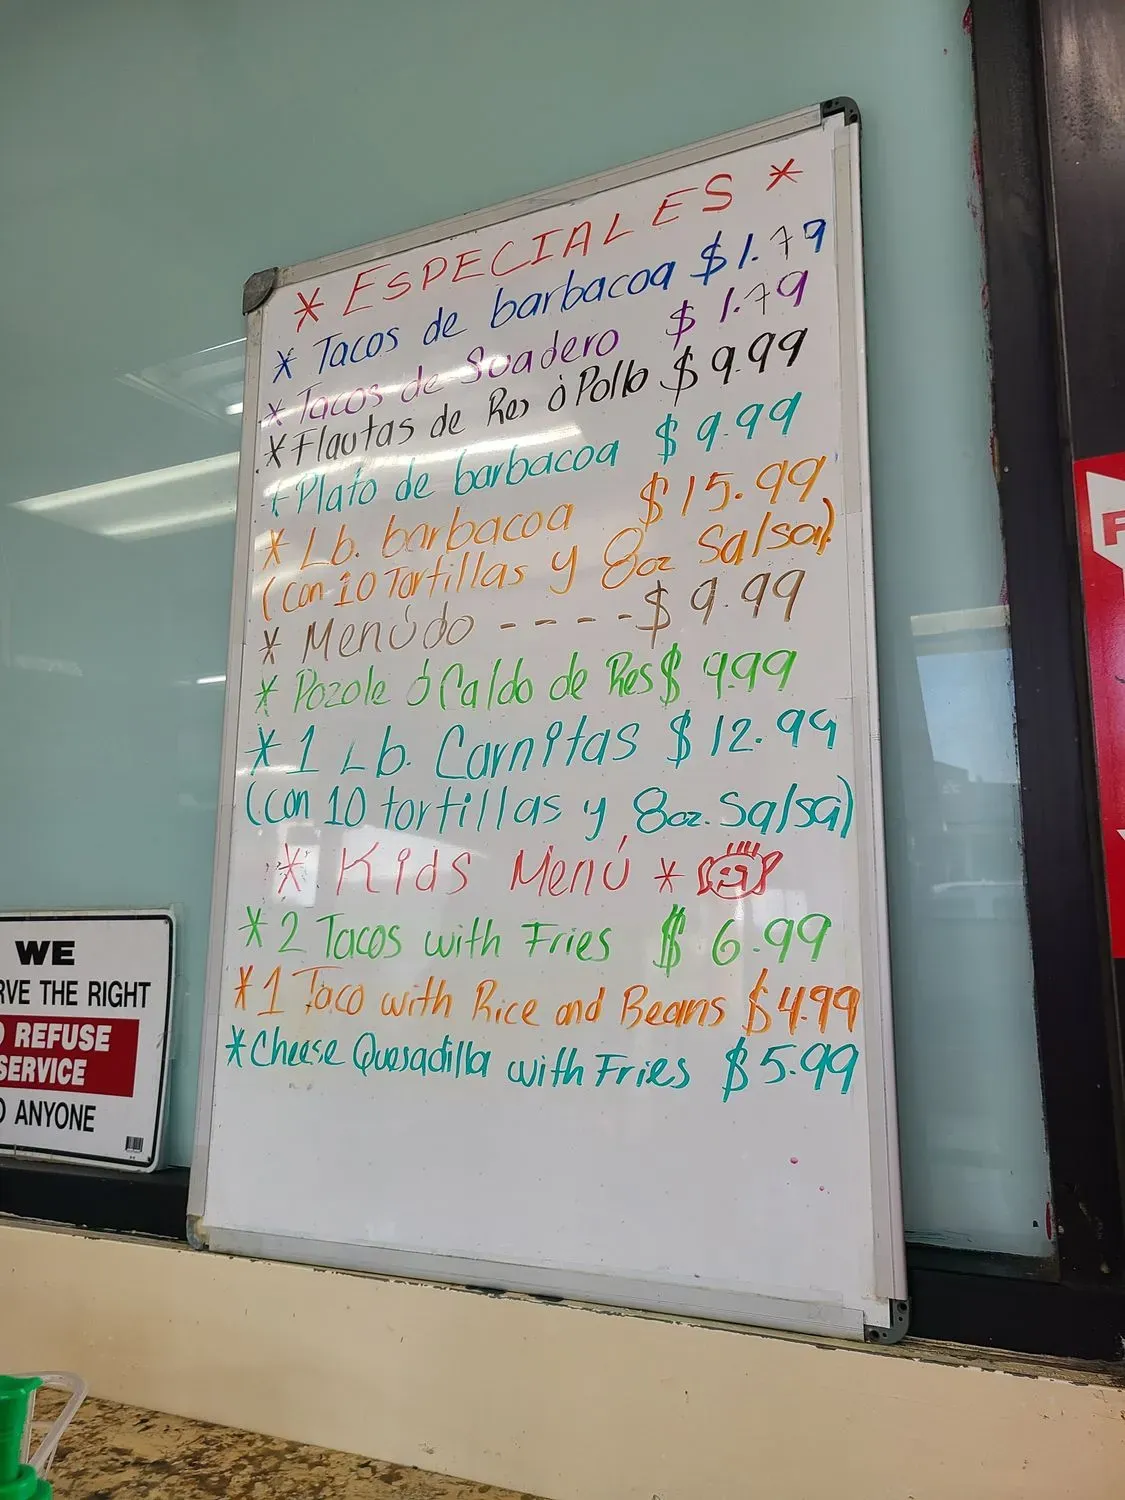 * ESPECIALES *
* Tacos de barbacoa $1.79
* Tacos de Suadero $1.79
* Flautas de Res ó Pollo $9.99
+ Plato de barbacoa $9.99
* Lb. barbacoa $15.99
(con 10 Tortillas y 8oz Salsa)
* Menúdo ----$9.99
* Pozole ó Caldo de Res $9.99
* 1 Lb. Carnitas $12.99
(con 10 tortillas y 8oz. Salsa)
* Kids Menú *
* 2 Tacos with Fries $6.99
* 1 Taco with Rice and Beans $4.99
* Cheese Quesadilla with Fries $5.99
WE
RVE THE RIGHT
O REFUSE
SERVICE
O ANYONE
F